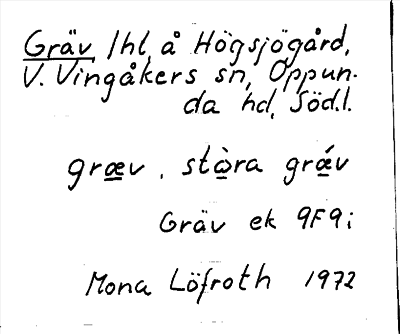 Gräv, lhl, å Högsjögård,
V. Vingåkers sn, Oppun-
da hd, Södl.
græv, stòra grǽv
Gräv ek 9F9i
Mona Löfroth 1972